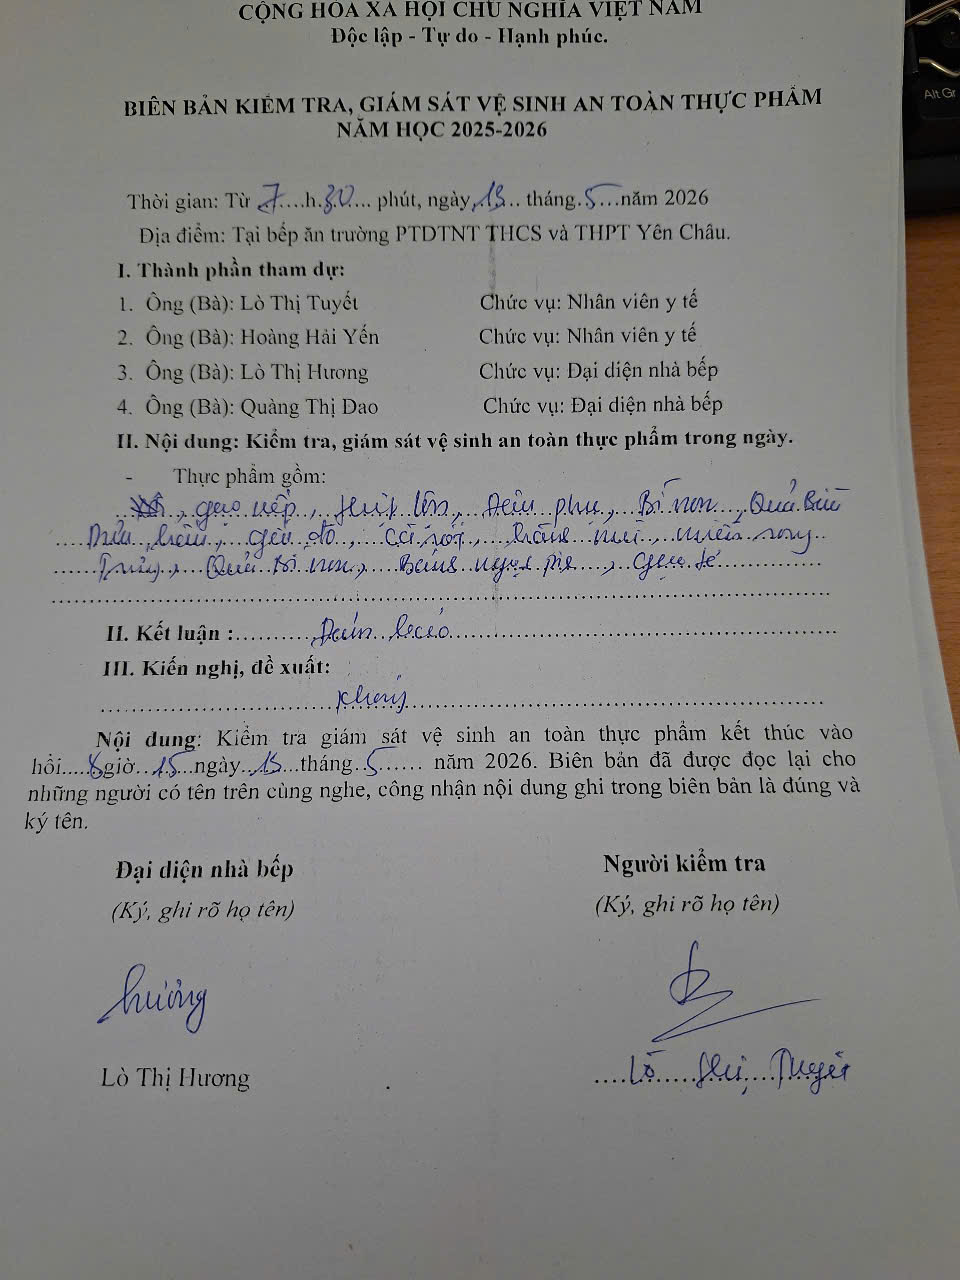 CỘNG HÒA XÃ HỘI CHỦ NGHĨA VIỆT NAM
Độc lập - Tự do - Hạnh phúc.
BIÊN BẢN KIỂM TRA, GIÁM SÁT VỆ SINH AN TOÀN THỰC PHẨM
NĂM HỌC 2025-2026
Thời gian: Từ 7....h.30.... phút, ngày 13.. tháng.5...năm 2026
Địa điểm: Tại bếp ăn trường PTDTNT THCS và THPT Yên Châu.
I. Thành phần tham dự:
1. Ông (Bà): Lò Thị Tuyết Chức vụ: Nhân viên y tế
2. Ông (Bà): Hoàng Hải Yến Chức vụ: Nhân viên y tế
3. Ông (Bà): Lò Thị Hương Chức vụ: Đại diện nhà bếp
4. Ông (Bà): Quàng Thị Dao Chức vụ: Đại diện nhà bếp
II. Nội dung: Kiểm tra, giám sát vệ sinh an toàn thực phẩm trong ngày.
- Thực phẩm gồm:
gạo nếp, thịt lợn, Đậu phụ, Bí non, Quả Bầu
gấu đỏ, cà rốt, hành mùi, miến rong
Trứng, Quả Bí non, gạo tẻ
II. Kết luận : Đảm bảo
III. Kiến nghị, đề xuất:
Không
Nội dung: Kiểm tra giám sát vệ sinh an toàn thực phẩm kết thúc vào
hồi....8giờ..15..ngày..13...tháng..5...... năm 2026. Biên bản đã được đọc lại cho
những người có tên trên cùng nghe, công nhận nội dung ghi trong biên bản là đúng và
ký tên.
Đại diện nhà bếp Người kiểm tra
(Ký, ghi rõ họ tên) (Ký, ghi rõ họ tên)
Hương
Lò Thị Hương Lò Thị Tuyết
Alt Gr